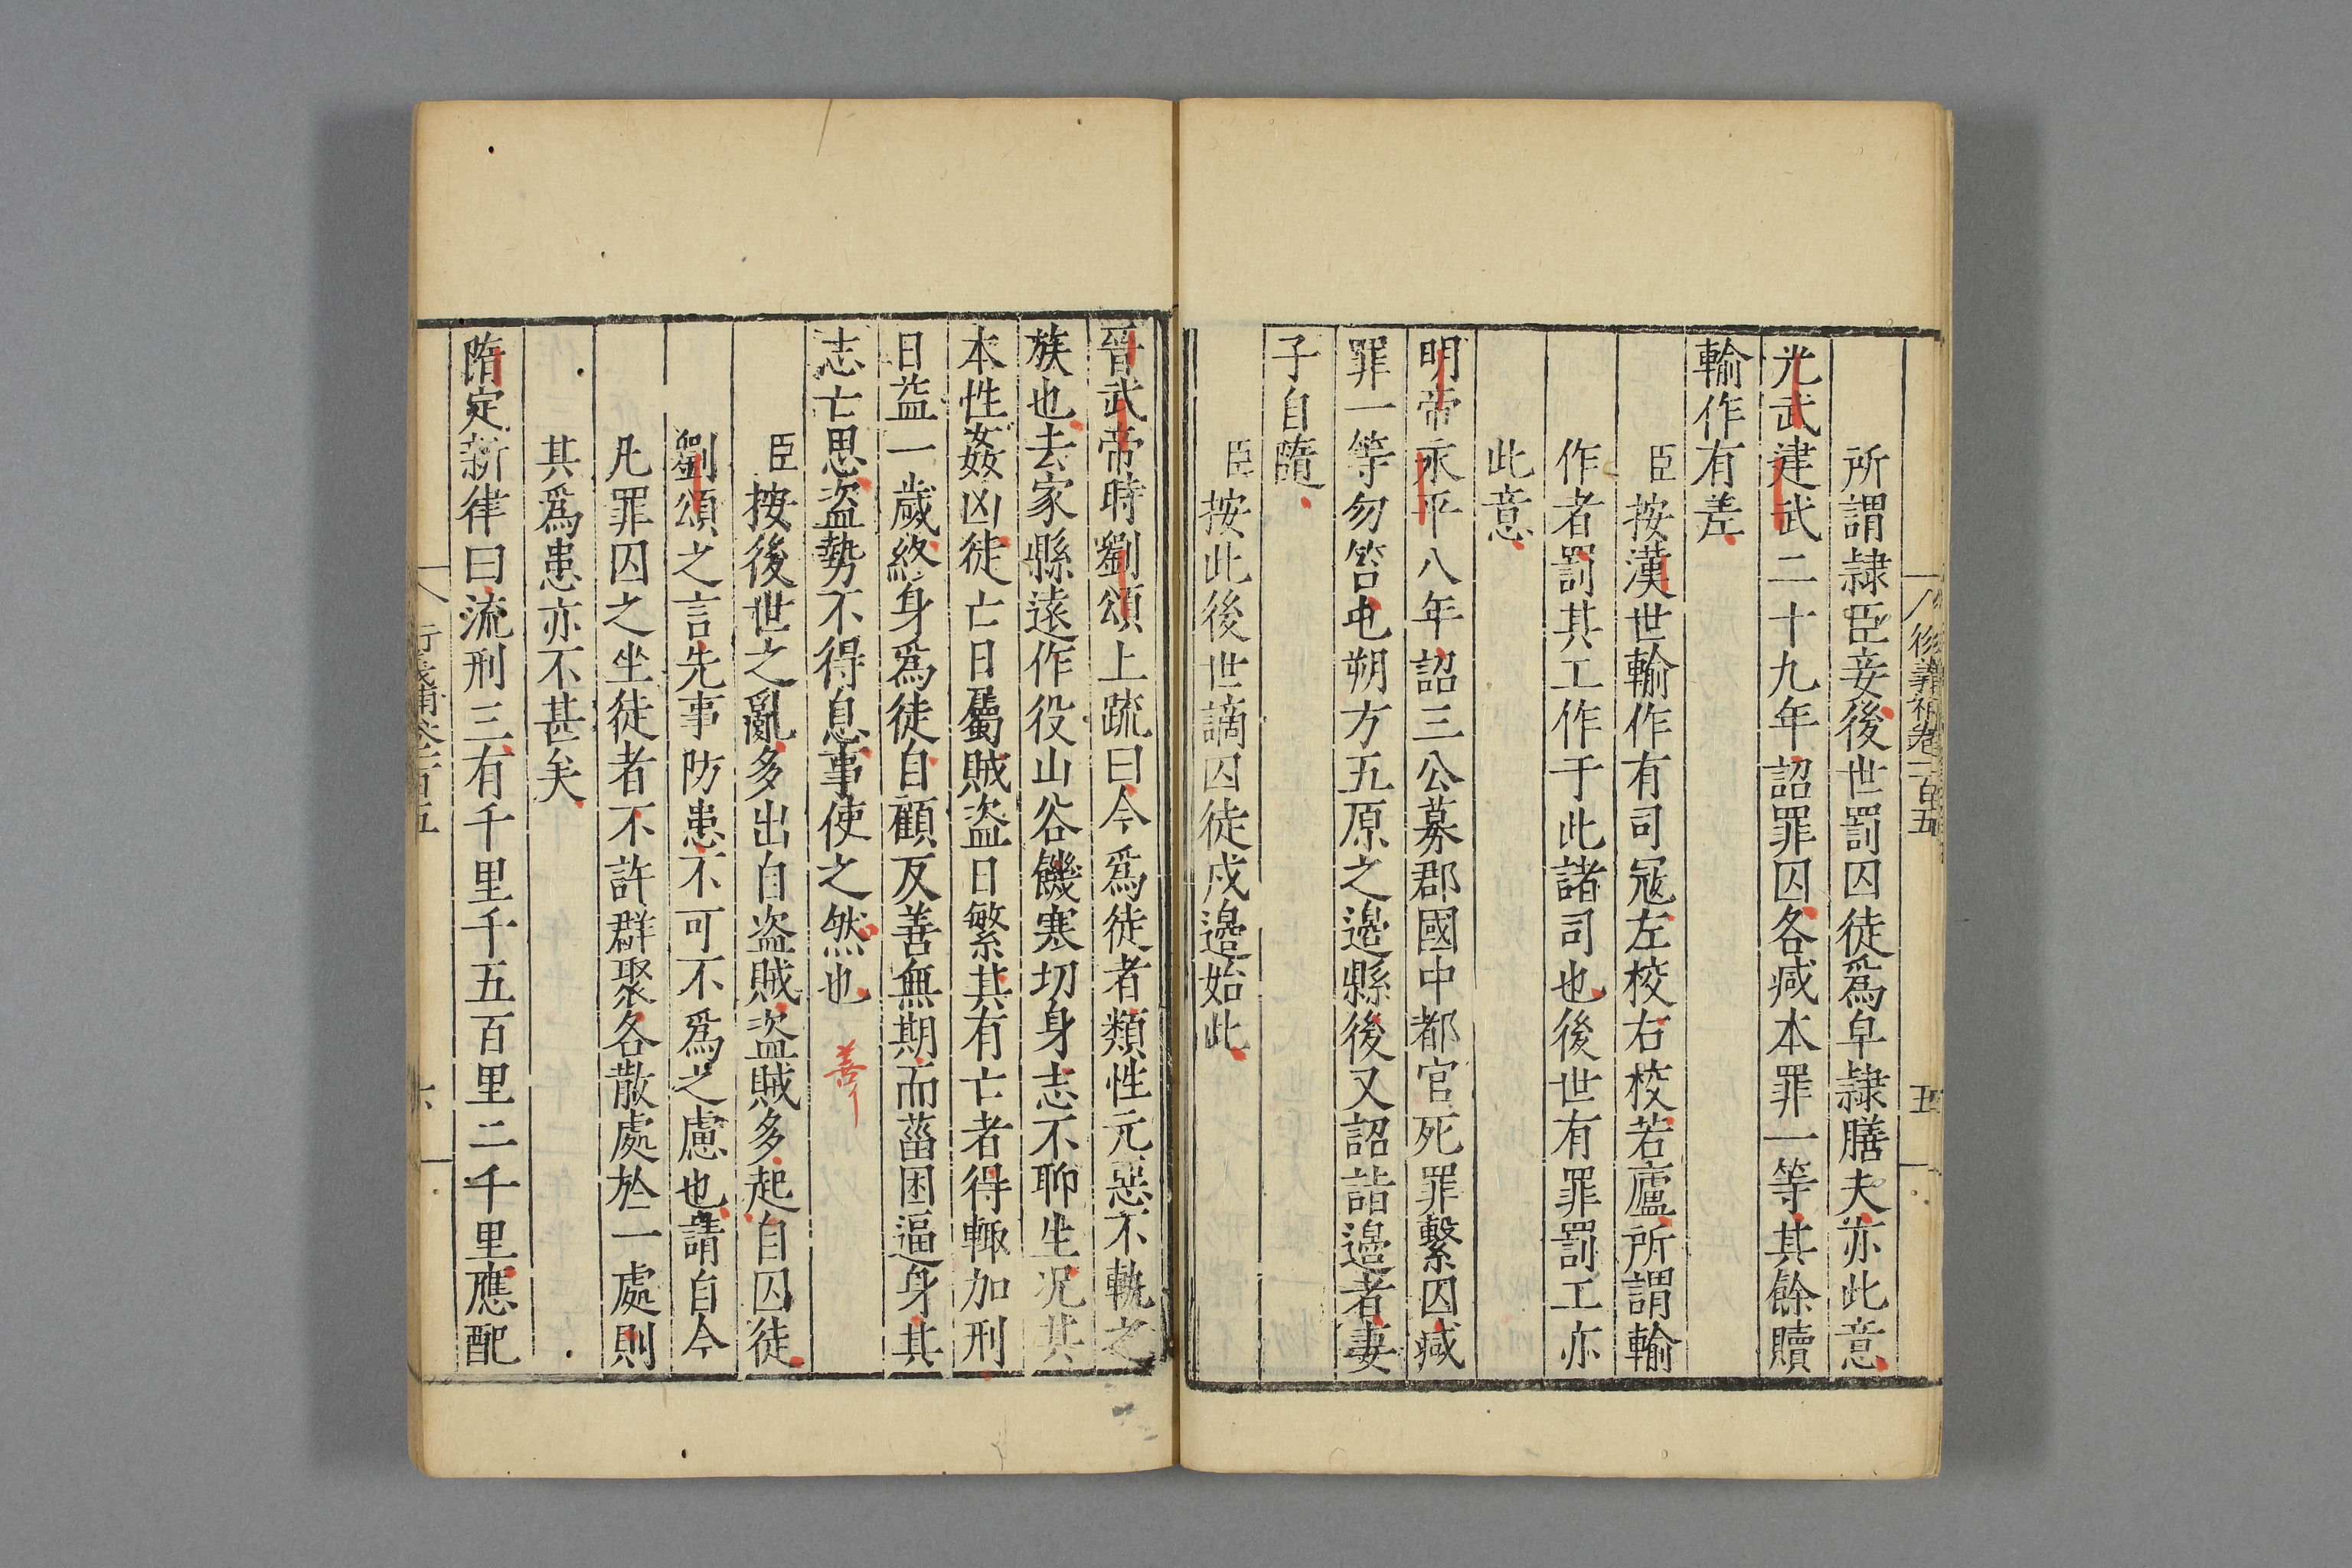 所謂隷臣妾後世罰囚徒爲皁隷膳夫亦此意
光武建武二十九年詔罪囚各減本罪一等其餘贖
輸作有差
臣按漢世輸作有司冦左校右校若廬所謂輸
作者罰其工作于此諸司也後世有罪罰工亦
此意
明帝永平八年詔三公募郡國中都官死罪繫囚減
罪一等勿笞屯朔方五原之邊縣後又詔詣邊者妻
子自隨
臣按此後世謫囚徒戍邊始此
晉武帝時劉頌上疏曰今爲徒者類性元惡不軌之
族也去家縣遠作役山谷饑寒切身志不聊生况其
本性姦凶徒亡日屬賊盗日繁其有亡者得輙加刑
日益一歲終身爲徒自顧反善無期而菑困逼身其
志亡思盗勢不得息事使之然也
善
臣按後世之亂多出自盗賊盗賊多起自囚徒
劉頌之言先事防患不可不爲之慮也請自今
凡罪囚之坐徒者不許群聚各散處於一處則
其爲患亦不甚矣
隋定新律曰流刑三有千里千五百里二千里應配